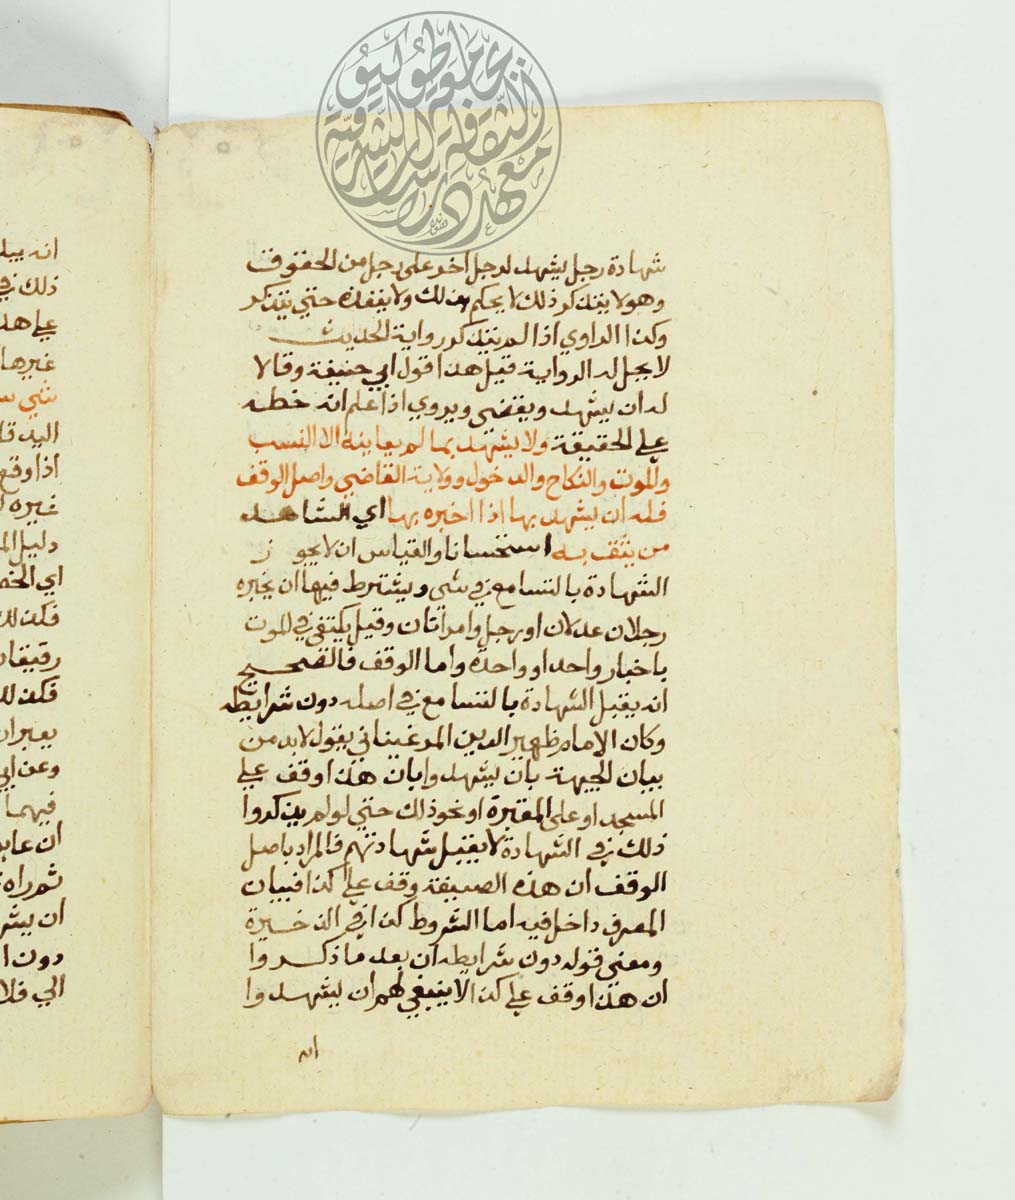 شهادة رجل يشهد لرجل اخر على رجل من الحقوق
وهو لا يتذكر ذلك لا يحكم بذلك ولا ينفذه حتي يتذكر
وكذا الراوي اذا لم يتذكر رواية الحديث
لا يحل له الرواية قيل هذا قول ابي حنيفة وقالا
له ان يشهد ويقضي ويروي اذا علم انه خطه
علي الحقيقة ولا يشهد بما لم يعاينه الا النسب
والموت والنكاح والدخول وولاية القاضي واصل الوقف
فله ان يشهد بها اذا اخبره بها اي الشاهد
من يثق به استحسانا والقياس ان لا يجوز
الشهادة بالتسامع في شي ويشترط فيها ان يخبره
رجلان عدلان او رجل وامراتان وقيل يكتفي في الموت
باخبار واحد او واحدة واما الوقف فالصحيح
انه يقبل الشهادة بالتسامع في اصله دون شرايطه
وكان الامام ظهير الدين المرغيناني يقول لا بد من
بيان الجهة بان يشهدوا بان هذا وقف علي
المسجد او على المقبرة او نحو ذلك حتي لو لم يذكروا
ذلك في الشهادة لا يقبل شهادتهم فالمراد باصل
الوقف ان هذه الضيعة وقف علي كذا فبيان
المصرف داخل فيه اما الشروط كذا في الذخيرة
ومعني قوله دون شرايطه ان بعد ما ذكروا
ان هذا وقف علي كذا لا ينبغي لهم ان يشهدوا
انه